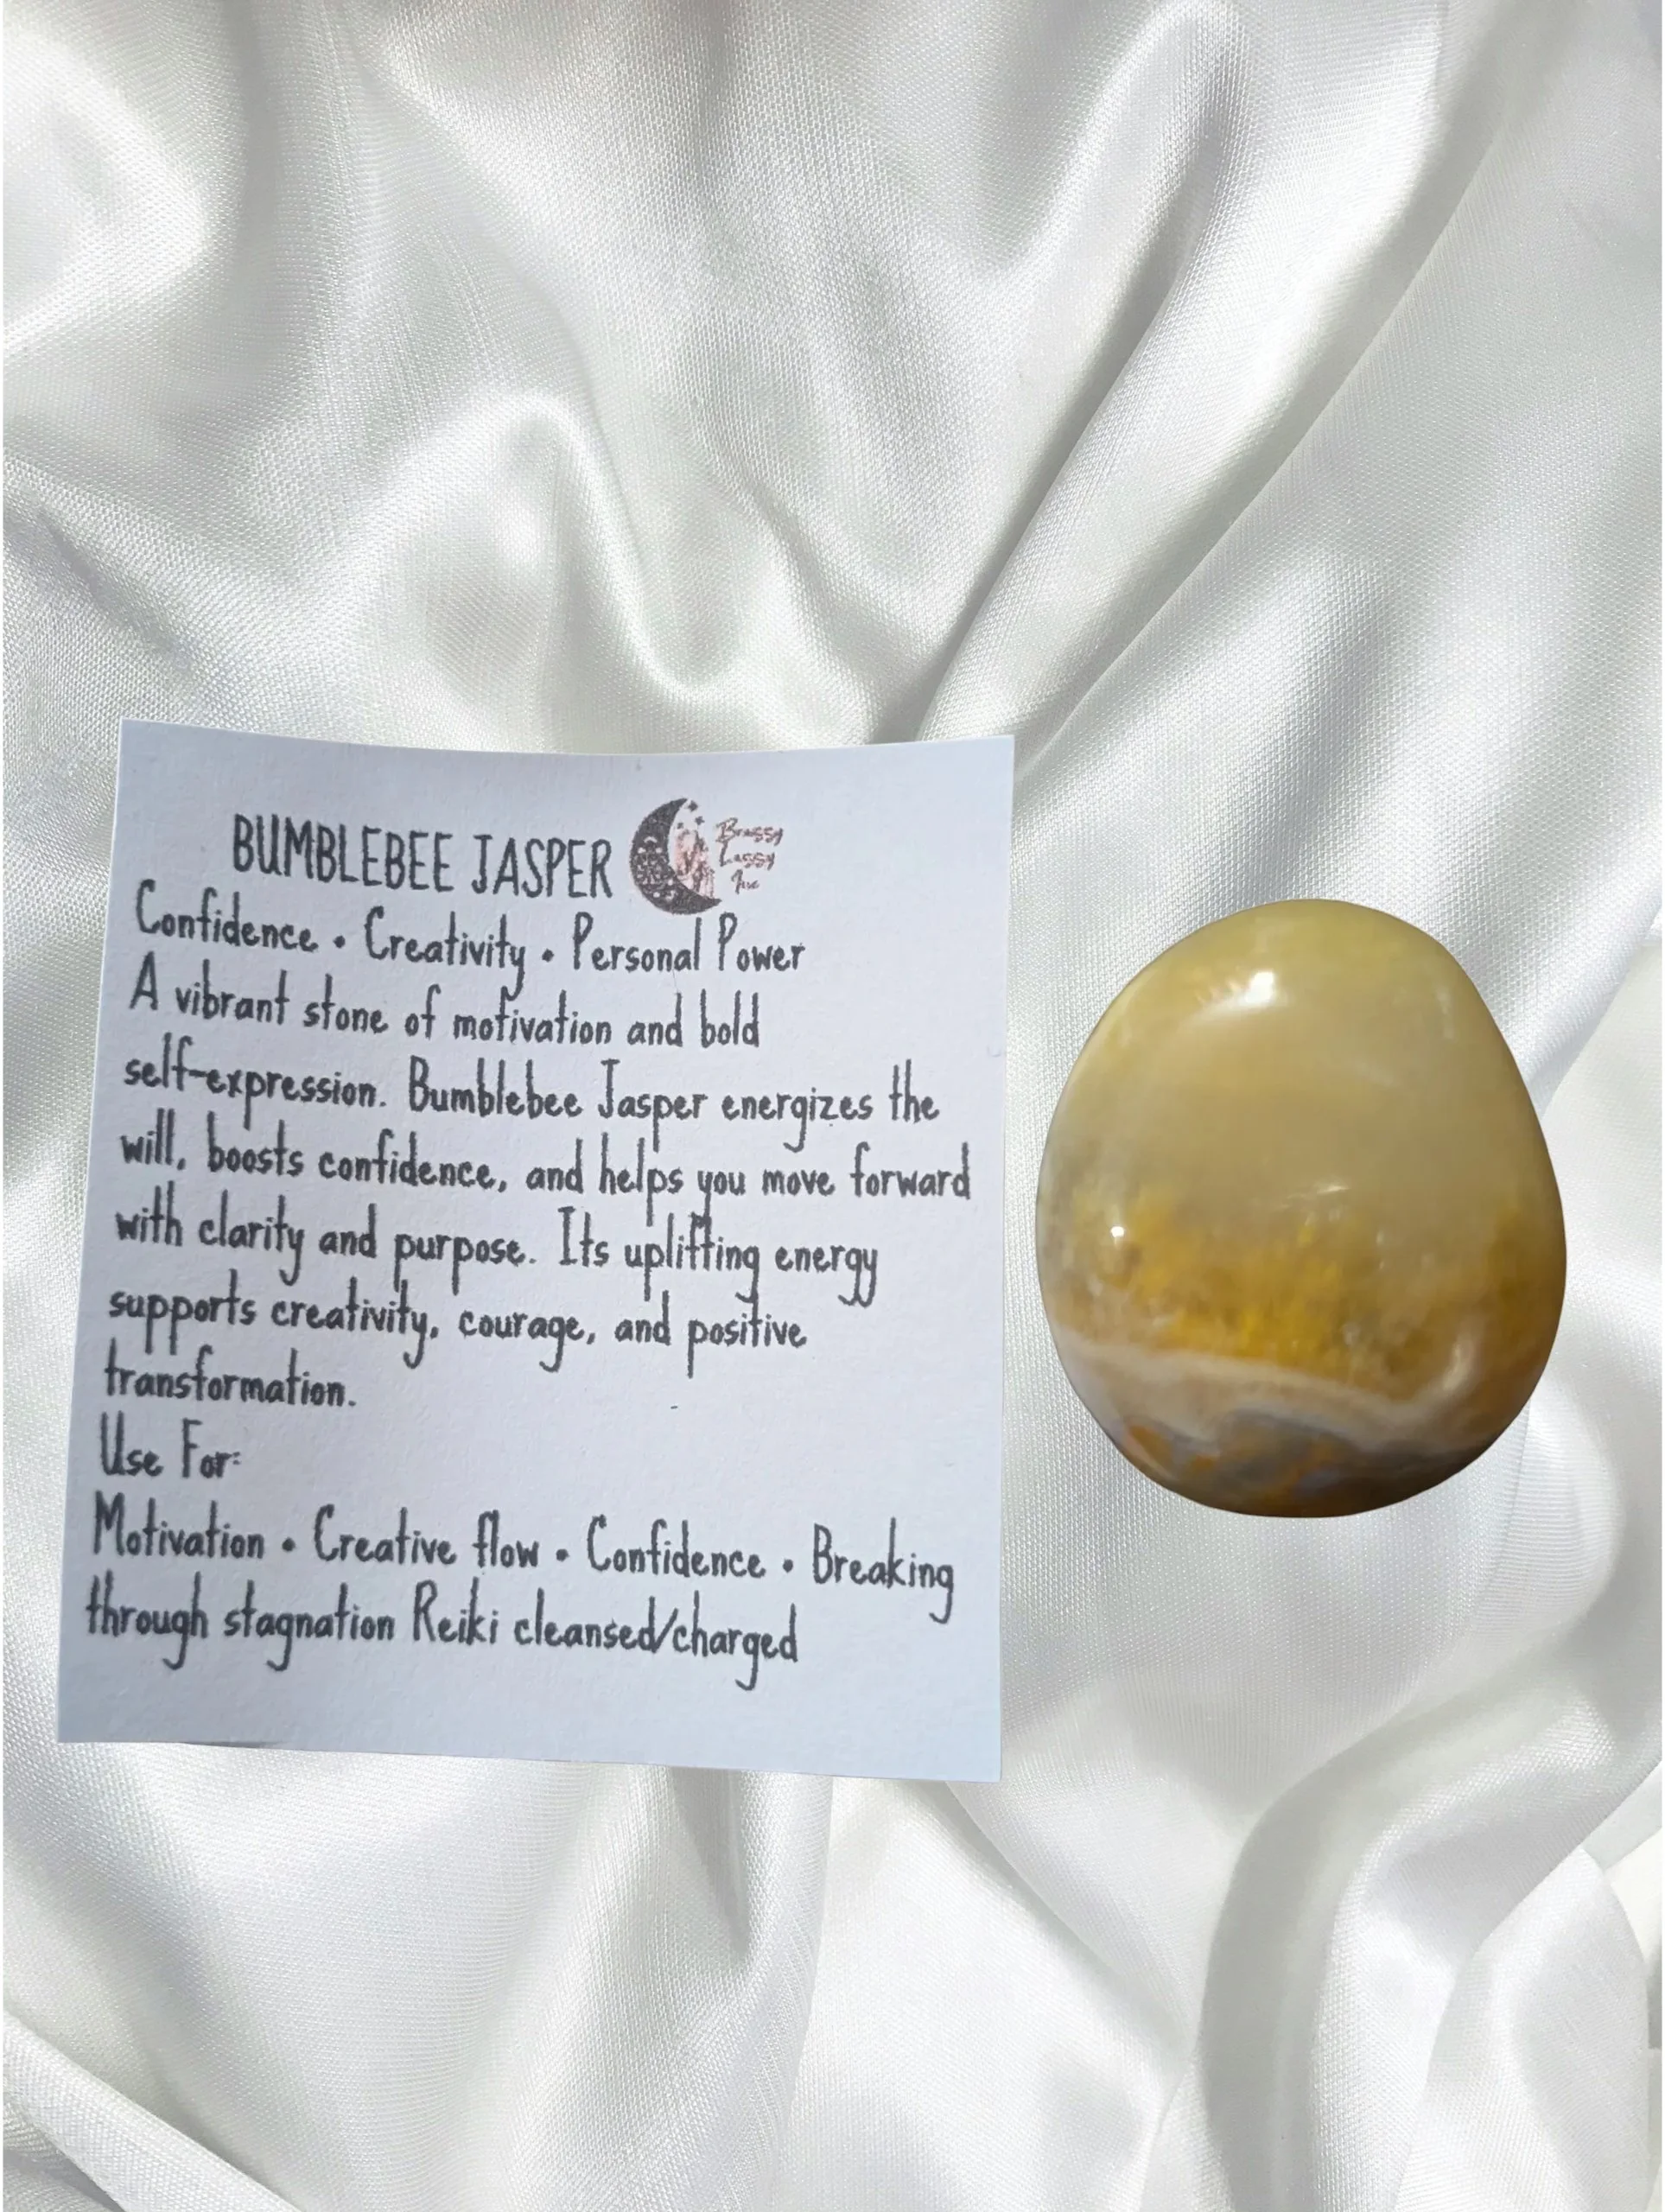 BUMBLEBEE JASPER
Brassy
Lassy
Inc
Confidence • Creativity • Personal Power
A vibrant stone of motivation and bold
self-expression. Bumblebee Jasper energizes the
will, boosts confidence, and helps you move forward
with clarity and purpose. Its uplifting energy
supports creativity, courage, and positive
transformation.
Use For:
Motivation • Creative flow • Confidence • Breaking
through stagnation Reiki cleansed/charged